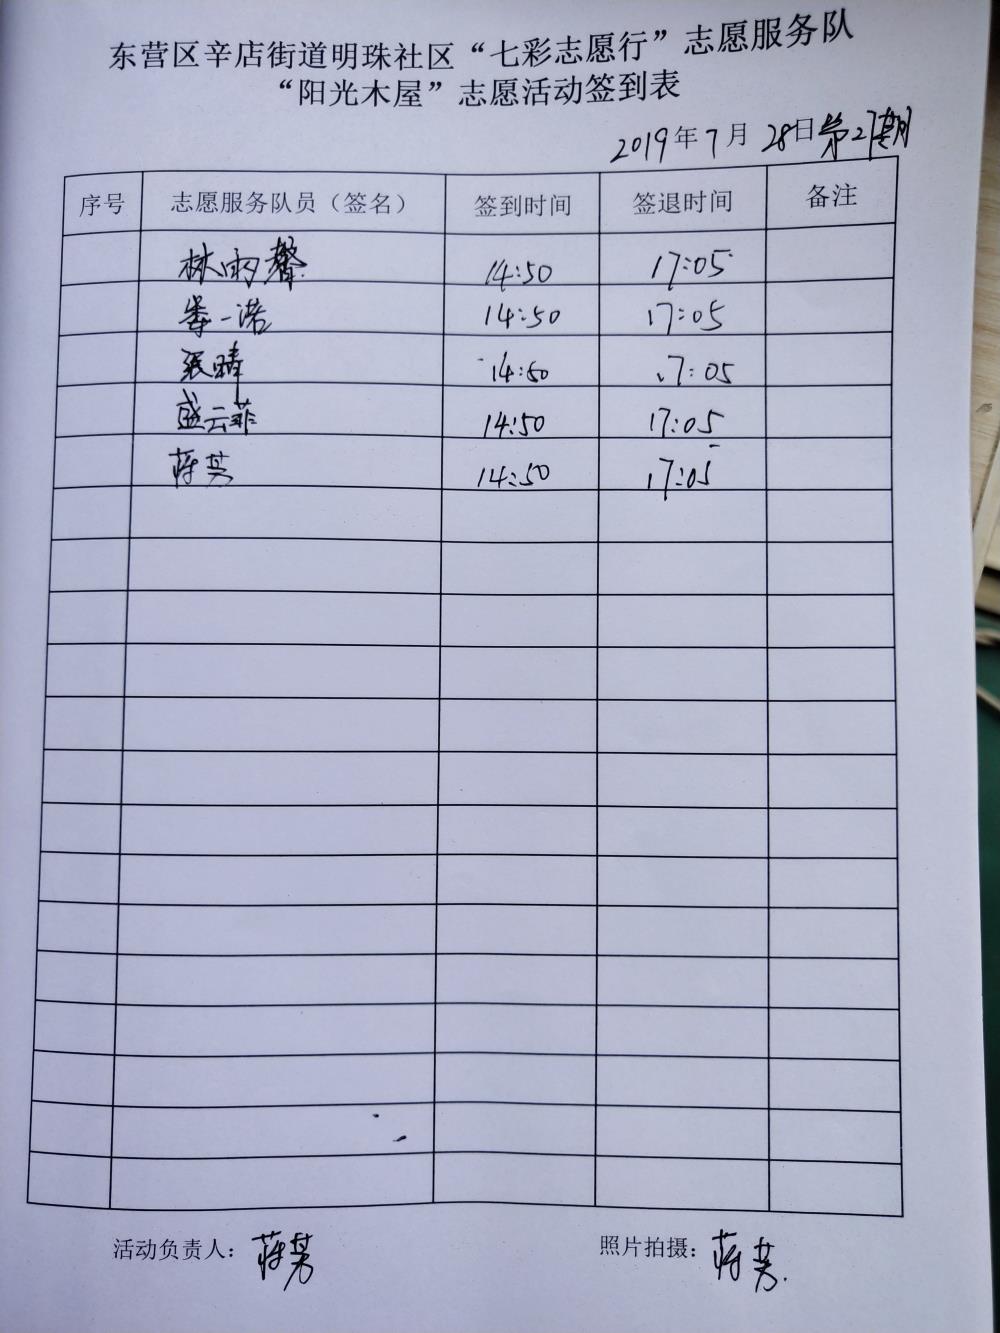 东营区辛店街道明珠社区“七彩志愿行”志愿服务队
“阳光木屋”志愿活动签到表
2019年7月28日第27期
序号 志愿服务队员（签名） 签到时间 签退时间 备注
林雨馨 14:50 17:05
娄一诺 14:50 17:05
张晴 14:50 17:05
盛云菲 14:50 17:05
蒋芳 14:50 17:05
活动负责人：蒋芳 照片拍摄：蒋芳